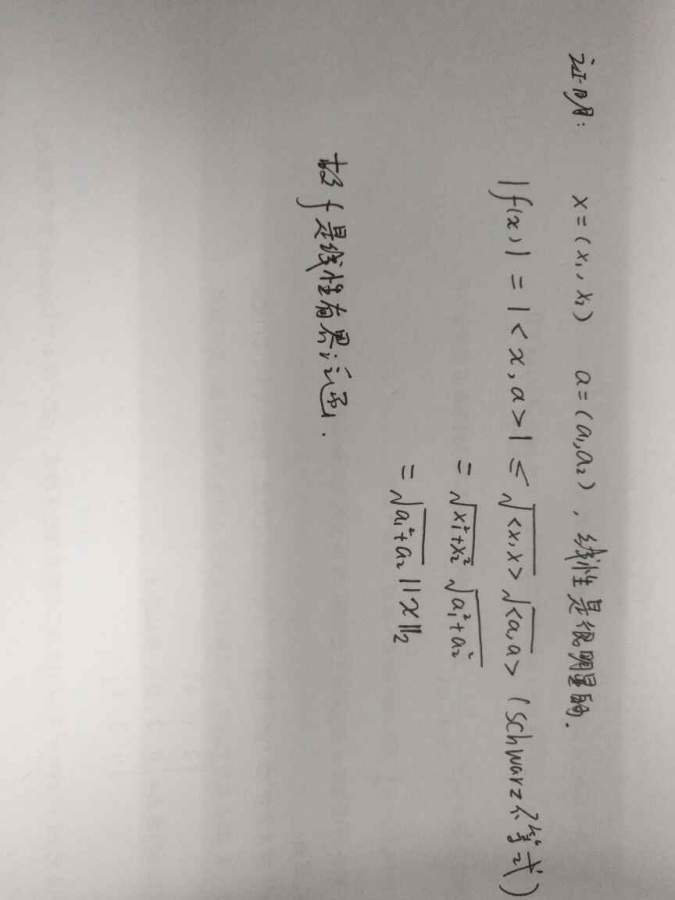 证明: x=(x₁,x₂) a=(a₁,a₂), 线性是很明显的.
|f(x)| = |<x,a>| ≤ √<x,x> √<a,a> (Schwarz不等式)
= √x₁²+x₂² √a₁²+a₂²
= √a₁²+a₂ ||x||₂
故f是线性有界泛函.